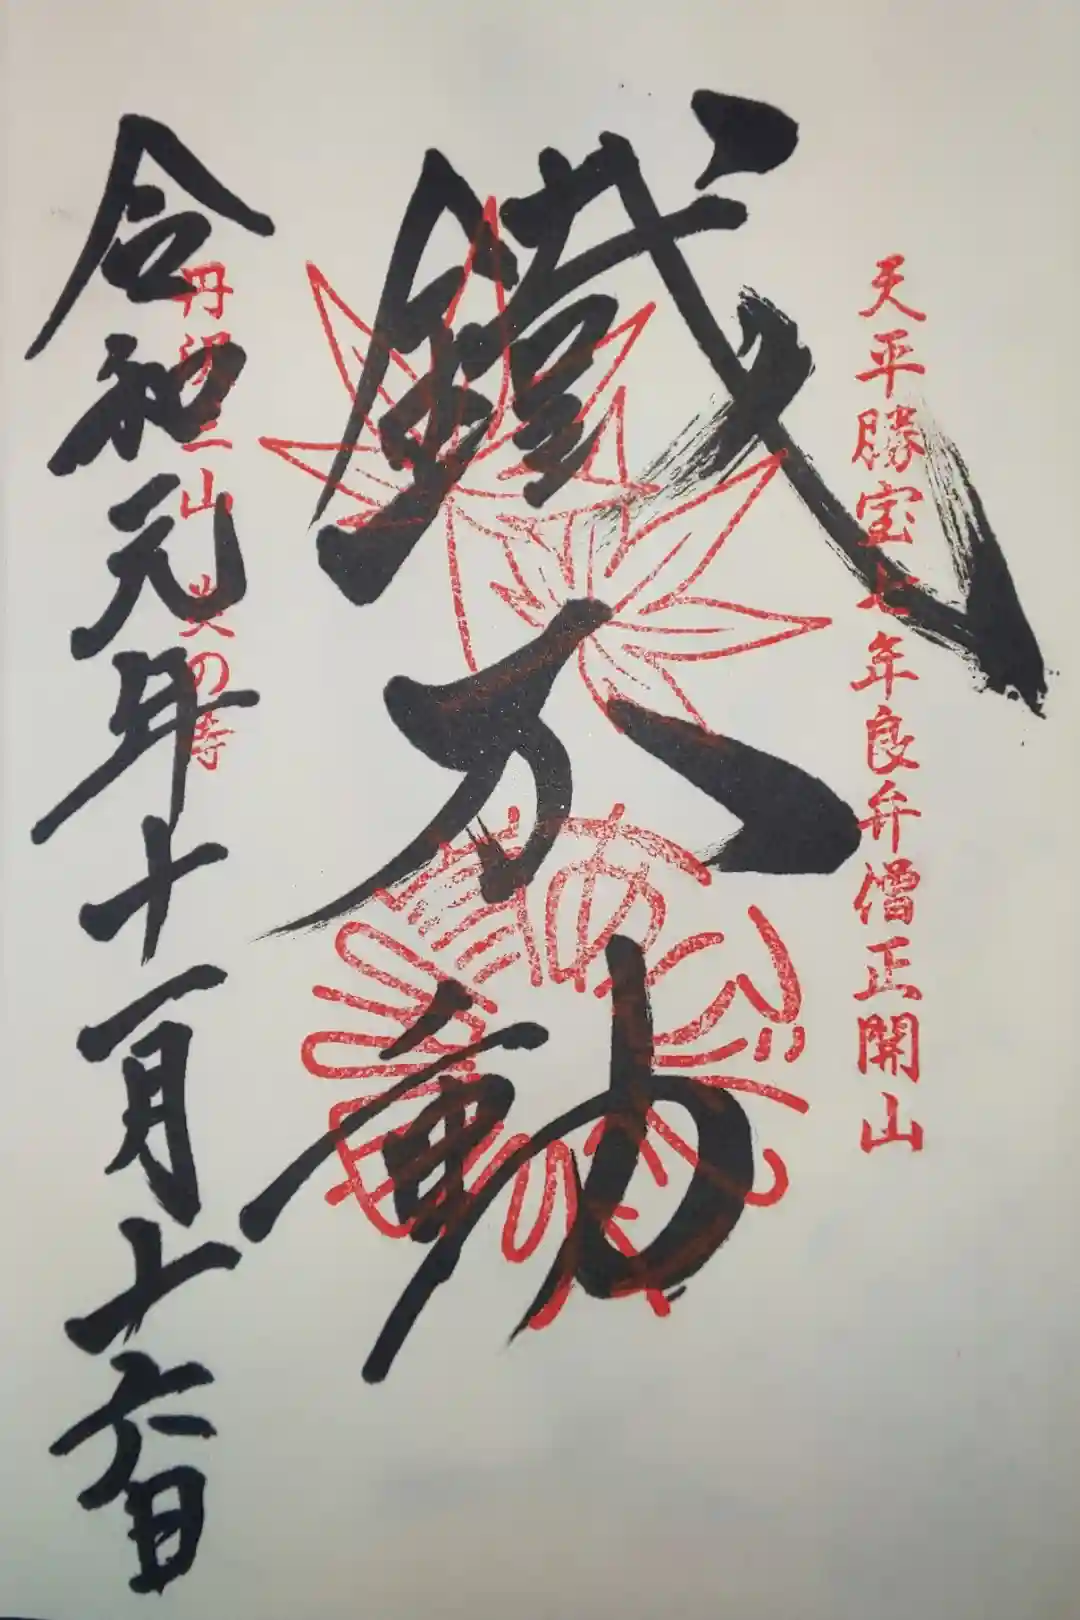 天平勝宝七年良弁僧正開山
鐵不動
丹沢大山 の寺
令和元年十一月十六日